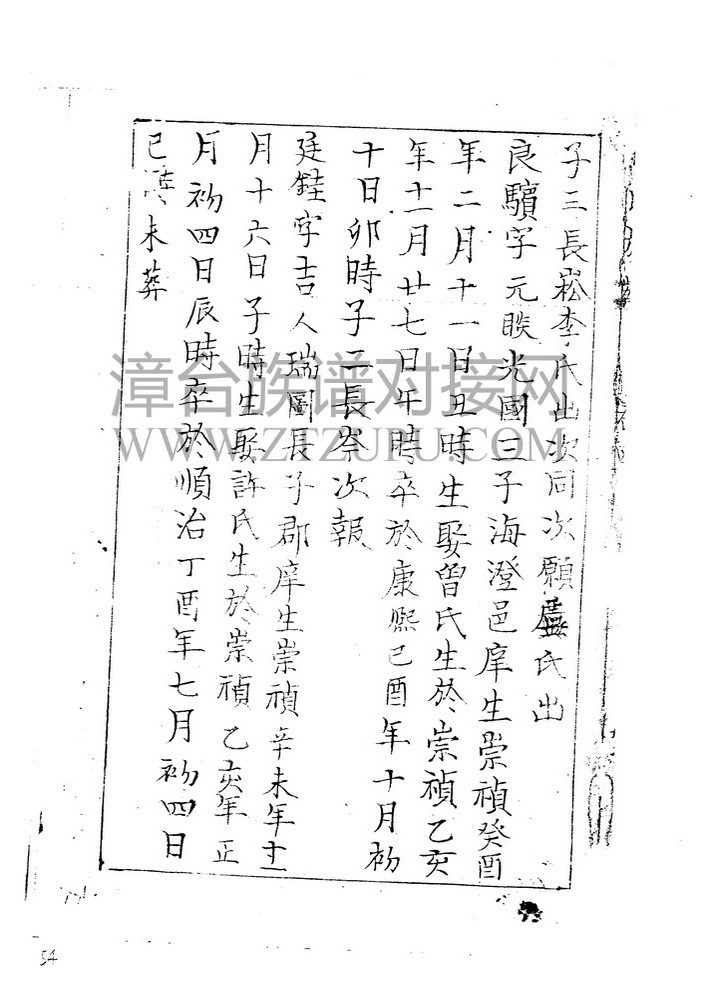 子三長崧李氏出次同次願盧氏出
良驥字元睒光國三子海澄邑庠生崇禎癸酉
年二月十一日丑時生娶曾氏生於崇禎乙亥
年十一月廿七日午時卒於康熙己酉年十月初
十日卯時子二長岑次報
廷鉒字吉人瑞圖長子郡庠生崇禎辛未年十二
月十六日子時生娶許氏生於崇禎乙亥年正
月初四日辰時卒於順治丁酉年七月初四日
巳時未葬
漳台族谱对接网
WWW.ZTZUPU.COM
54